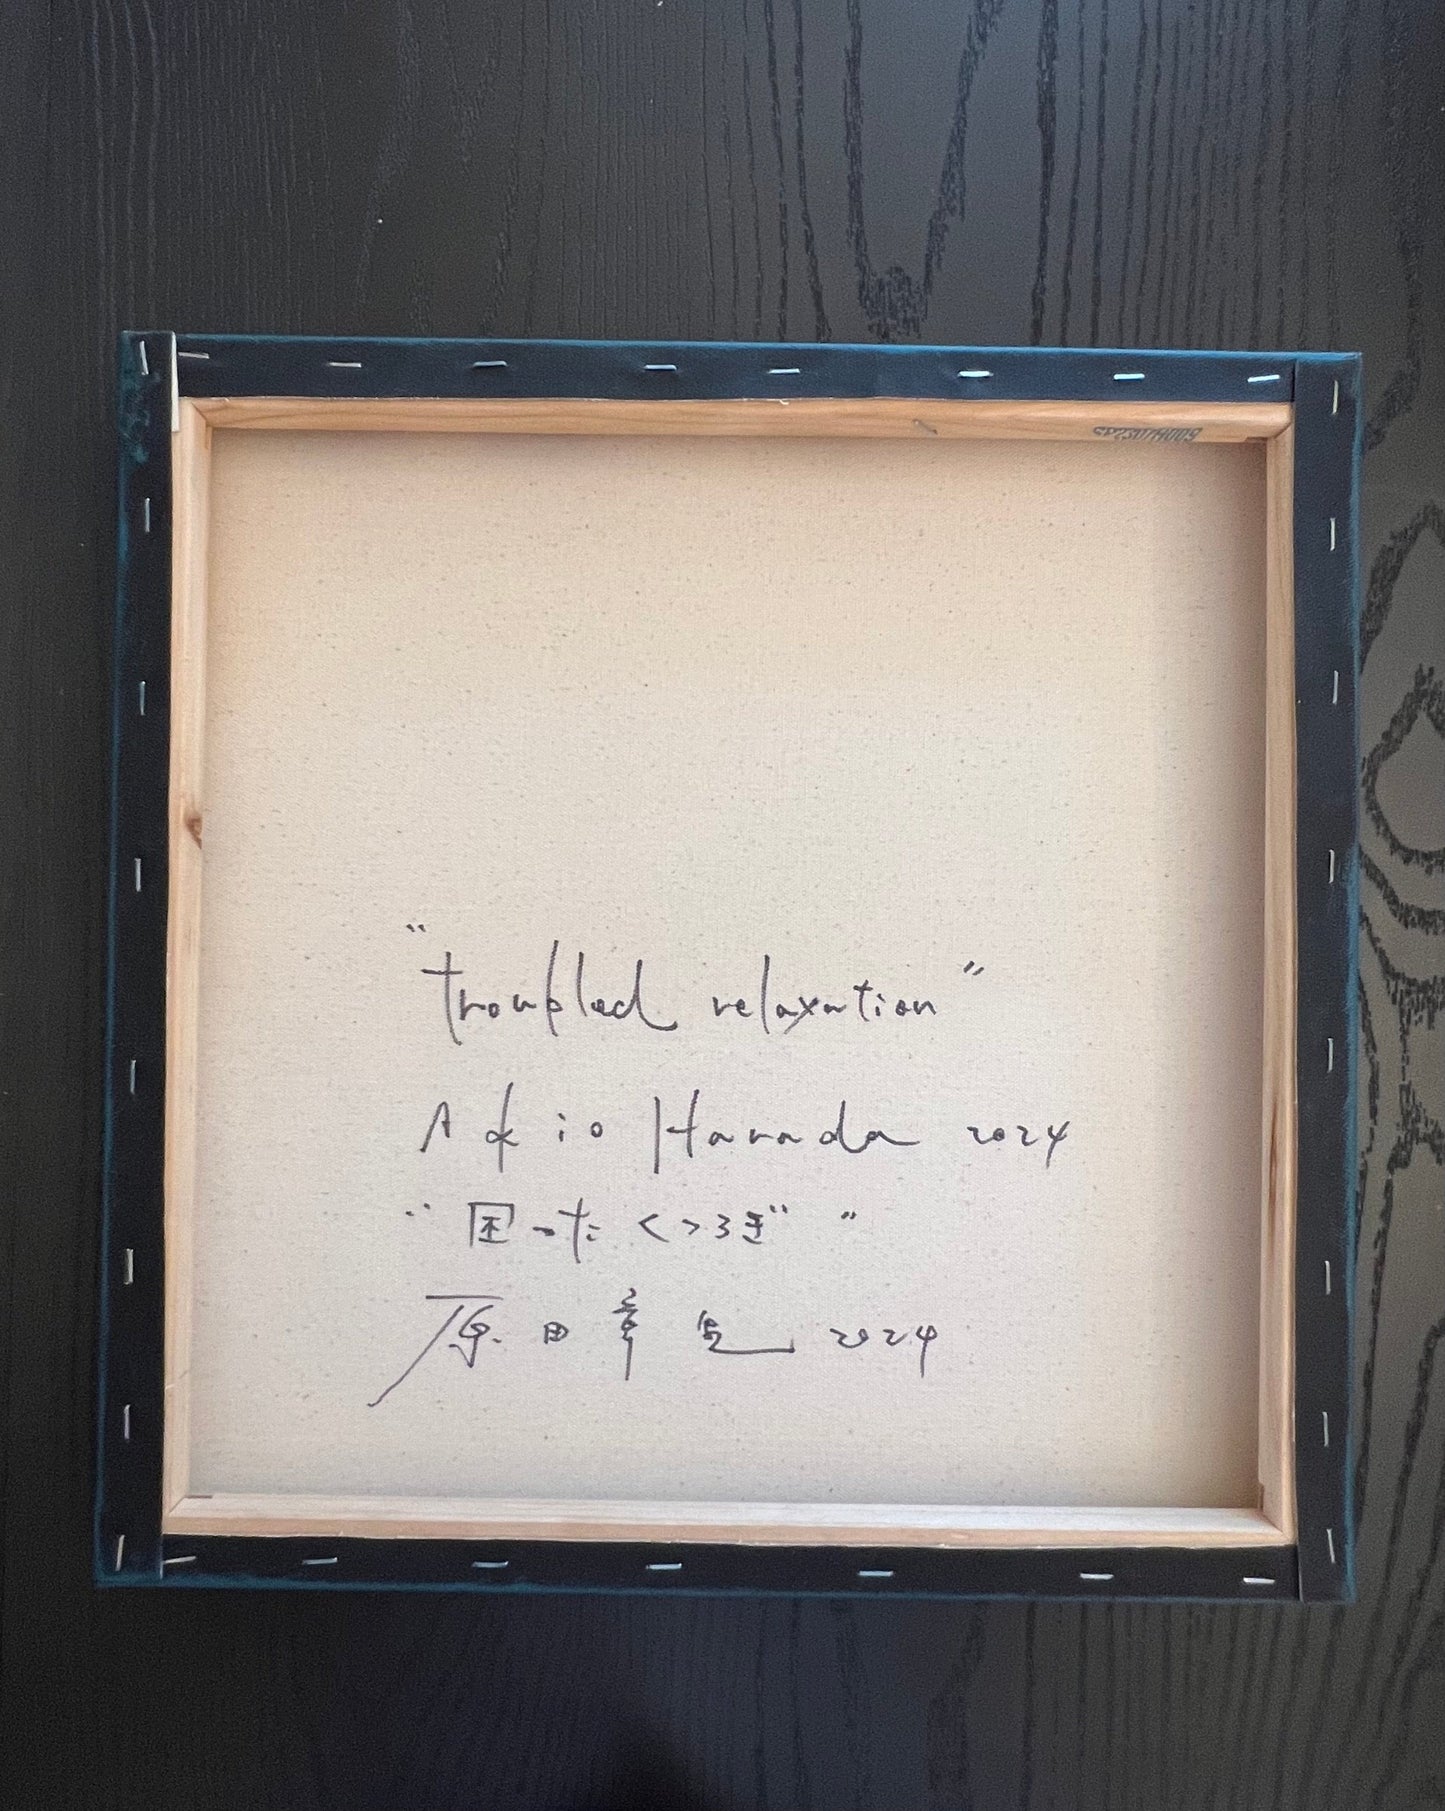 "troubled relaxation"
Akio Harada 2024
"困った くつろぎ"
原田章 2024